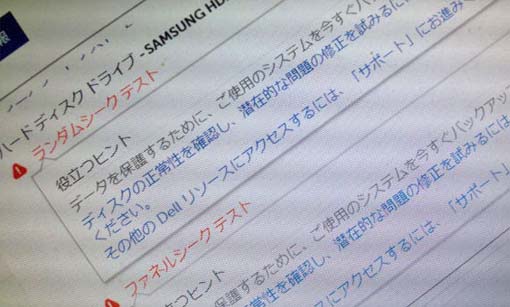 報
ハードディスクドライブ - SAMSUNG HD
ランダムシークテスト
役立つヒント
データを保護するために、ご使用のシステムを今すぐバックアップ
ディスクの正常性を確認し、潜在的な問題の修正を試みるには
ください。
その他の Dell リソースにアクセスするには、「サポート」にお進みく
ファネルシークテスト
立つヒント
タを保護するために、ご使用のシステムを今すぐバックアップ
の正常性を確認し、潜在的な問題の修正を試みるには
い。
リソースにアクセスするには、「サポート」